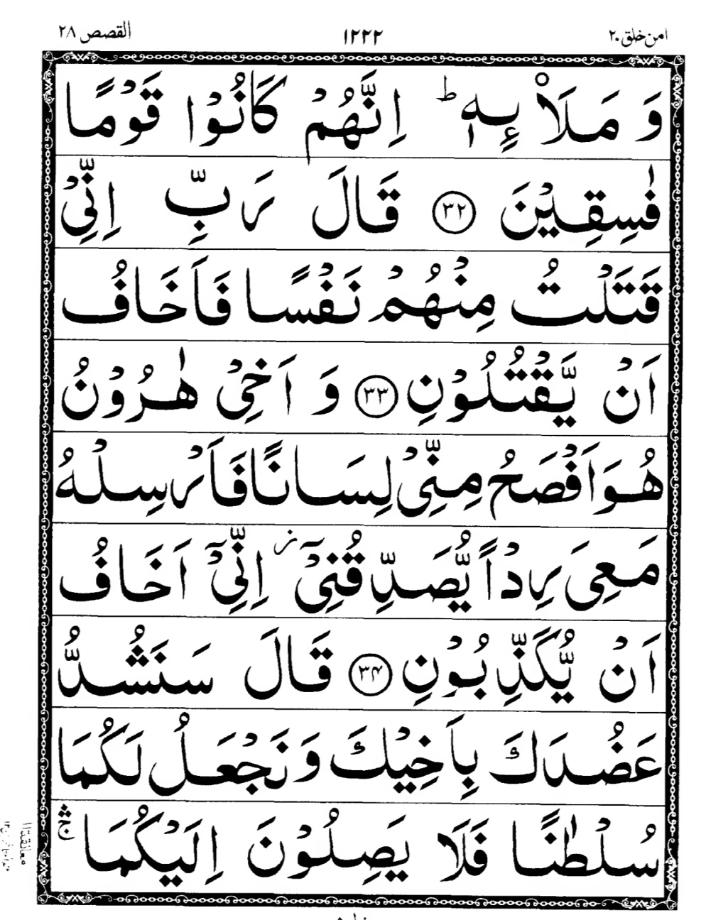 القصص ٢٨ ١٢٢٢ امن خلق ٢٠
وَ مَلَا۠ئِهٖ ؕ اِنَّهُمْ كَانُوْا قَوْمًا
فٰسِقِيْنَ ۝٣٢ قَالَ رَبِّ اِنِّيْ
قَتَلْتُ مِنْهُمْ نَفْسًا فَاَخَافُ
اَنْ يَّقْتُلُوْنِ ۝٣٣ وَ اَخِيْ هٰرُوْنُ
هُوَ اَفْصَحُ مِنِّيْ لِسَانًا فَاَرْسِلْهُ
مَعِيَ رِدْاً يُّصَدِّقُنِيْۤ ز اِنِّيْۤ اَخَافُ
اَنْ يُّكَذِّبُوْنِ ۝٣٤ قَالَ سَنَشُدُّ
عَضُدَكَ بِاَخِيْكَ وَ نَجْعَلُ لَكُمَا
سُلْطٰنًا فَلَا يَصِلُوْنَ اِلَيْكُمَا ۛۚ